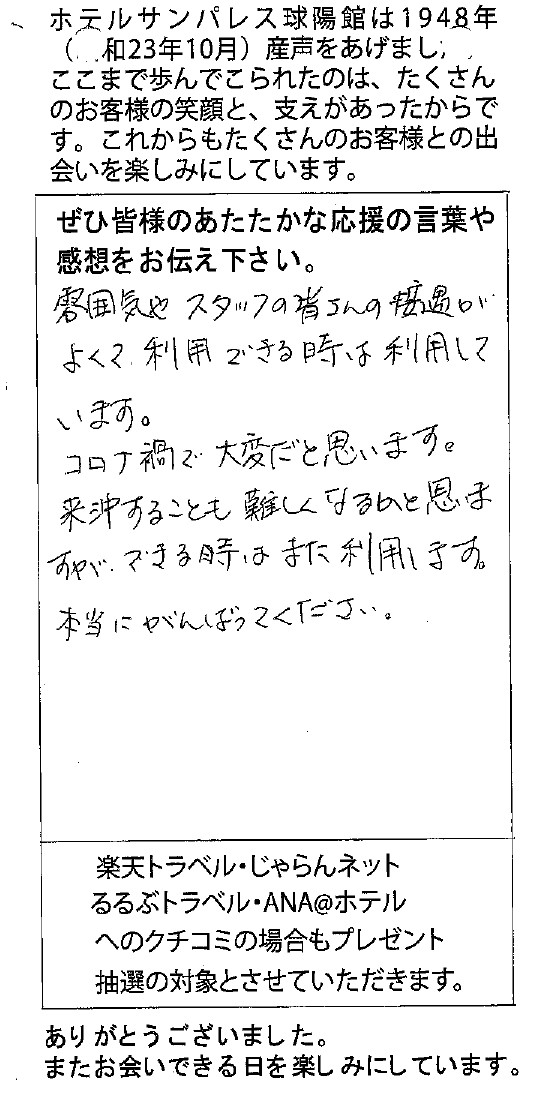 ホテルサンパレス球陽館は1948年
(和23年10月)産声をあげまし
ここまで歩んでこられたのは、たくさん
のお客様の笑顔と、支えがあったからで
す。これからもたくさんのお客様との出
会いを楽しみにしています。
ぜひ皆様のあたたかな応援の言葉や
感想をお伝え下さい。
雰囲気や スタッフの皆さんの接遇が
よくて、利用 できる時は利用して
います。
コロナ禍で 大変だと思います。
来沖することも 難しくなるかと思いま
すが、できる時は また 利用します。
本当に がんばってください。
楽天トラベル・じゃらんネット
るるぶトラベル・ANA@ホテル
へのクチコミの場合もプレゼント
抽選の対象とさせていただきます。
ありがとうございました。
またお会いできる日を楽しみにしています。